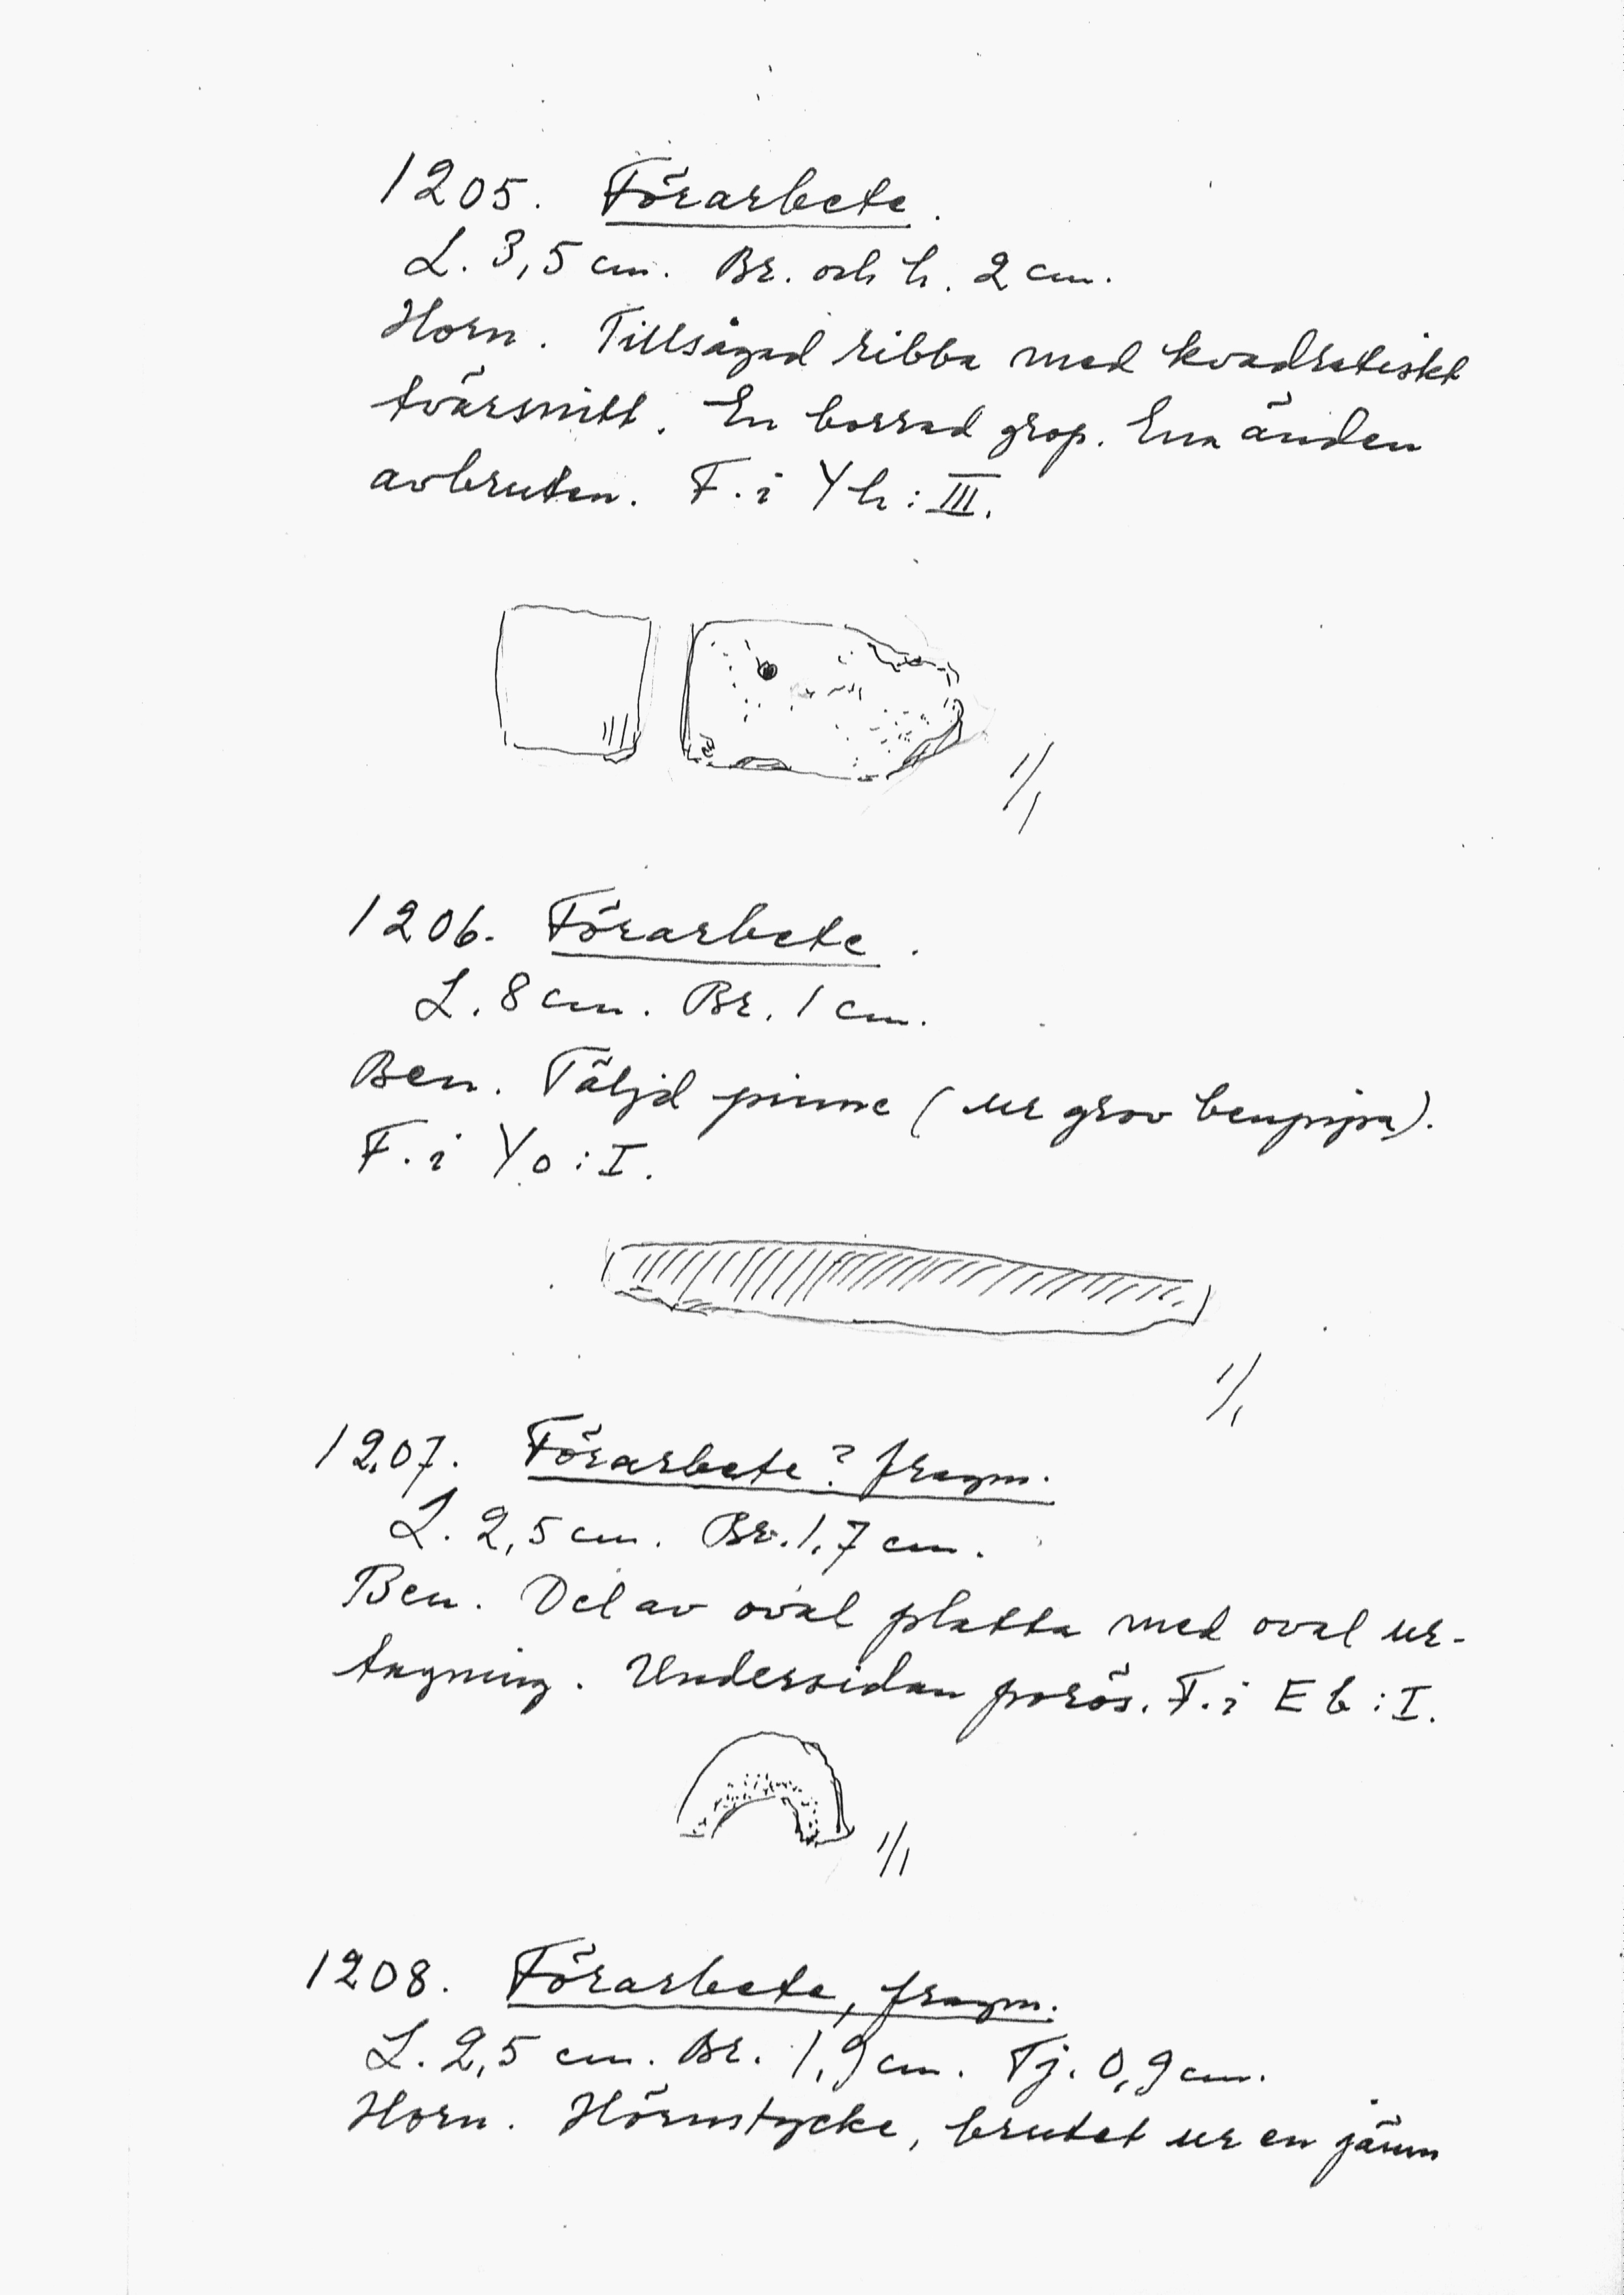 1205. Förarbete.
L. 3,5 cm. Br. och h. 2 cm.
Horn. Tillsågad ribba med kvadratiskt
tvärsnitt. En borrad grop. Ena änden
avbruten. F. i Yh : III.
1/1
1206. Förarbete.
L. 8 cm. Br. 1 cm.
Ben. Täljd pinne (ur grov benpipa).
F. i Yo : I.
1/1
1207. Förarbete? fragm.
L. 2,5 cm. Br. 1,7 cm.
Ben. Del av oval platta med oval ur-
tagning. Undersidan porös. F. i Eb : I.
1/1
1208. Förarbete, fragm.
L. 2,5 cm. Br. 1,9 cm. Tj. 0,9 cm.
Horn. Hörnstycke, brutet ur en jämn